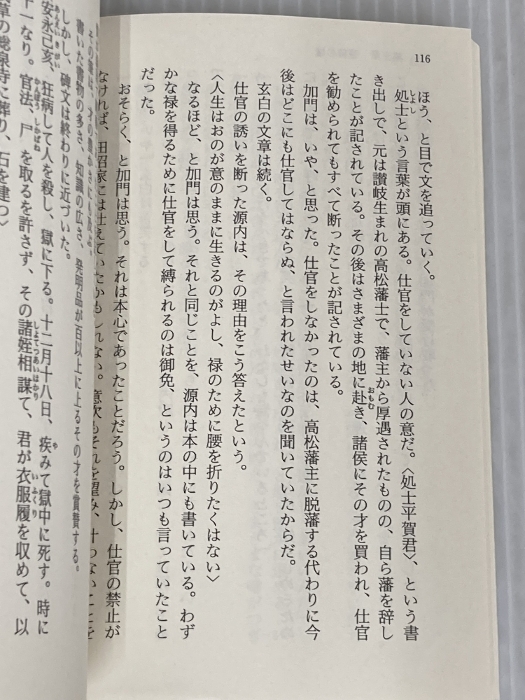 116
ほう、と目で文を追っていく。
処士という言葉が頭にある。仕官をしていない人の意だ。〈処士平賀君〉、という書
き出しで、元は讃岐生まれの高松藩士で、藩主から厚遇されたものの、自ら藩を辞し
たことが記されている。その後はさまざまの地に赴き、諸侯にその才を買われ、仕官
を勧められてもすべて断ったことが記されている。
加門は、いや、と思った。仕官をしなかったのは、高松藩主に脱藩する代わりに今
後はどこにも仕官してはならぬ、と言われたせいなのを聞いていたからだ。
玄白の文章は続く。
仕官の誘いを断った源内は、その理由をこう答えたという。
〈人生はおのが意のままに生きるのがよし、禄のために腰を折りたくはない〉
なるほど、と加門は思う。それと同じことを、源内は本の中にも書いている。わず
かな禄を得るために仕官をして縛られるのは御免、というのはいつも言っていたこと
だった。
おそらく、と加門は思う。それは本心であったことだろう。しかし、仕官の禁止が
なければ、田沼家には仕えていたかもしれない。意次もそれを望み、叶わないことを
書いた書物の多さ、知識の広さ、発明品が百以上に上るその才を賞賛する。
しかし、碑文は終わりに近づいた。
安永己亥、狂病して人を殺し、獄に下る。十二月十八日、疾みて獄中に死す。時に
十一なり。官法、尸を取るを許さず、その諸姪相謀て、君が衣服履を収めて、以
葬り、石を建つ〉